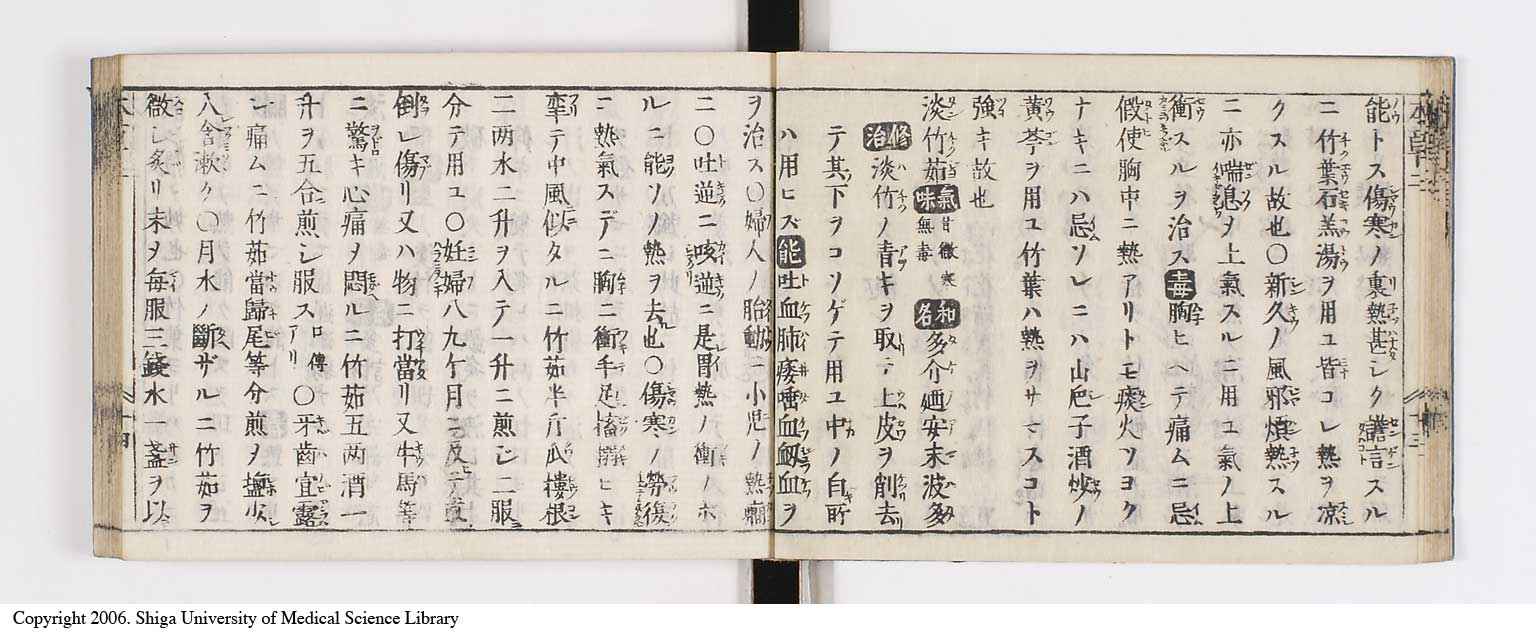 能トス傷寒ノ裏熱甚シク譫言スル
ニ竹葉石羔湯ヲ用ユ皆コレ熱ヲ凉
クスル故也〇新久ノ風邪煩熱スル
ニ亦喘息ヲ上氣スルニ用ユ氣ノ上
衝スルヲ治ス毒胸ヒヘテ痛ムニ忌
假使胸中ニ熱アリトモ痰火ツヨク
ナキニハ忌ソレニハ山巵子酒炒ノ
黄芩ヲ用ユ竹葉ハ熱ヲサマスコト
強キ故也
淡竹茹氣味甘微寒無毒和名多介廼安末波多
修治淡竹ノ青キヲ取テ上皮ヲ削去
テ其下ヲコソゲテ用ユ中ノ白所
ハ用ヒズ能吐血肺痿唾血衂血ヲ
ヲ治ス〇婦人ノ胎動ニ小児ノ熱癎
ニ〇吐逆ニ咳逆ニ是胃熱ノ衝ノホ
ルニ能ソノ熱ヲ去也〇傷寒ノ勞復
ニ熱氣スデニ胸ニ衝手足搐搦ヒキ
テ中風似タルニ竹茹半斤瓜樓根
二两水二升ヲ入テ一升ニ煎じ二服
分テ用ユ〇妊婦八九ケ月ニ及テ或
倒レ傷リ又ハ物ニ打當リ又牛馬等
ニ驚キ心痛ヲ悶ルニ竹茹五两酒一
升ヲ五合煎シ服スアリ口傳〇牙齒宜露
シ痛ムニ竹茹當歸尾等分煎ヲ塩少
入含漱ク〇月水ノ斷ザルニ竹茹ヲ
微シ炙リ末ヲ毎服三錢水一盞ヲ以
十三
十四
Copyright 2006. Shiga University of Medical Science Library